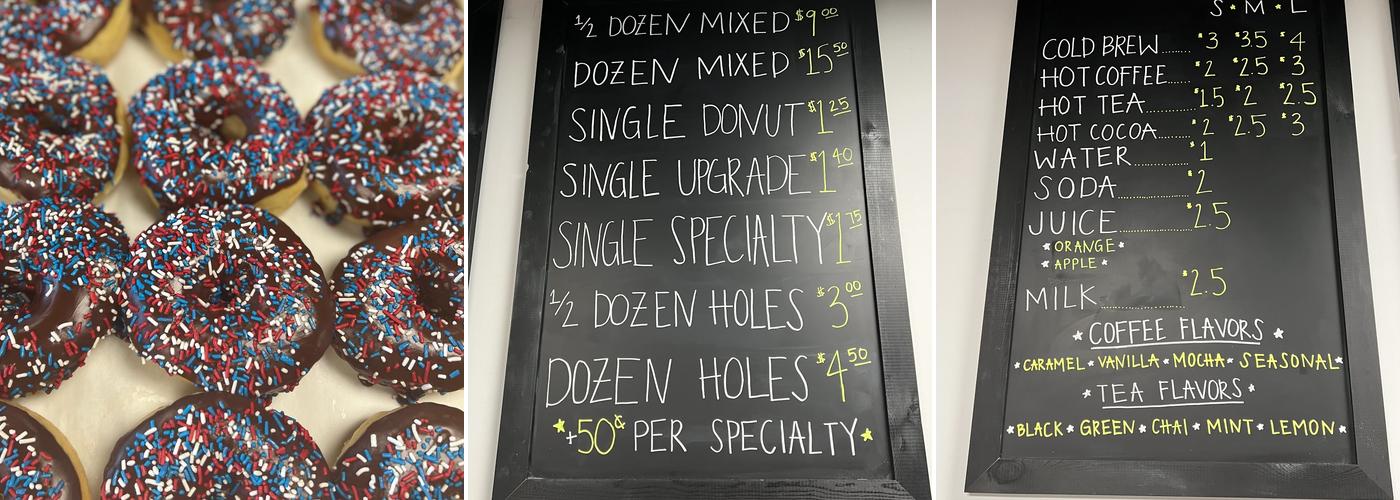 ½ DOZEN MIXED $9.00
DOZEN MIXED $15.50
SINGLE DONUT $1.25
SINGLE UPGRADE $1.40
SINGLE SPECIALTY $1.75
½ DOZEN HOLES $3.00
DOZEN HOLES $4.50
+50¢ PER SPECIALTY
S • M • L
COLD BREW........ $3 $3.5 $4
HOT COFFEE...... $2 $2.5 $3
HOT TEA............ $1.5 $2 $2.5
HOT COCOA........ $2 $2.5 $3
WATER............ $1
SODA................ $2
JUICE................ $2.5
* ORANGE *
* APPLE *
MILK.................. $2.5
* COFFEE FLAVORS *
* CARAMEL * VANILLA * MOCHA * SEASONAL *
* TEA FLAVORS *
* BLACK * GREEN * CHAI * MINT * LEMON *